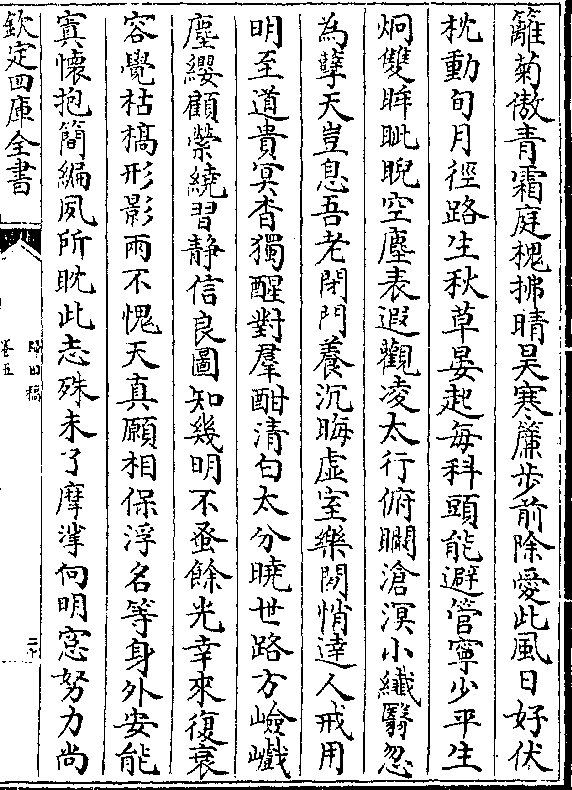 籬菊傲青霜庭槐拂晴昊寒簾步前除愛此風日好伏
枕動旬月徑路生秋草晏起每科頭能避管寧少平生
炯雙眸眦睨空塵表遐觀凌太行俯瞯滄溟小纎翳忽
為孽天豈息吾老閉門養沉晦虚室樂閴悄達人戒用
明至道貴冥杳獨醒對羣酣清白太分曉世路方嶮巇
塵纓顧縈繞習靜信良圖知幾明不蚤餘光幸來復衰
容覺枯槁形影兩不愧天真願相保浮名等身外安能
寘懷抱簡編夙所眈此志殊未了摩挲向明窓努力尚
欽定四庫全書
卷五